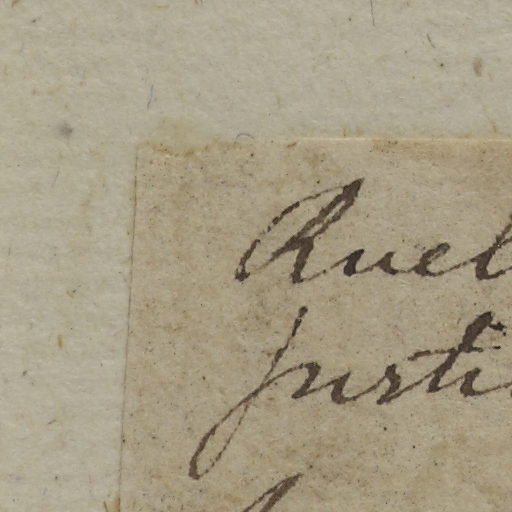 Ruel
Justi